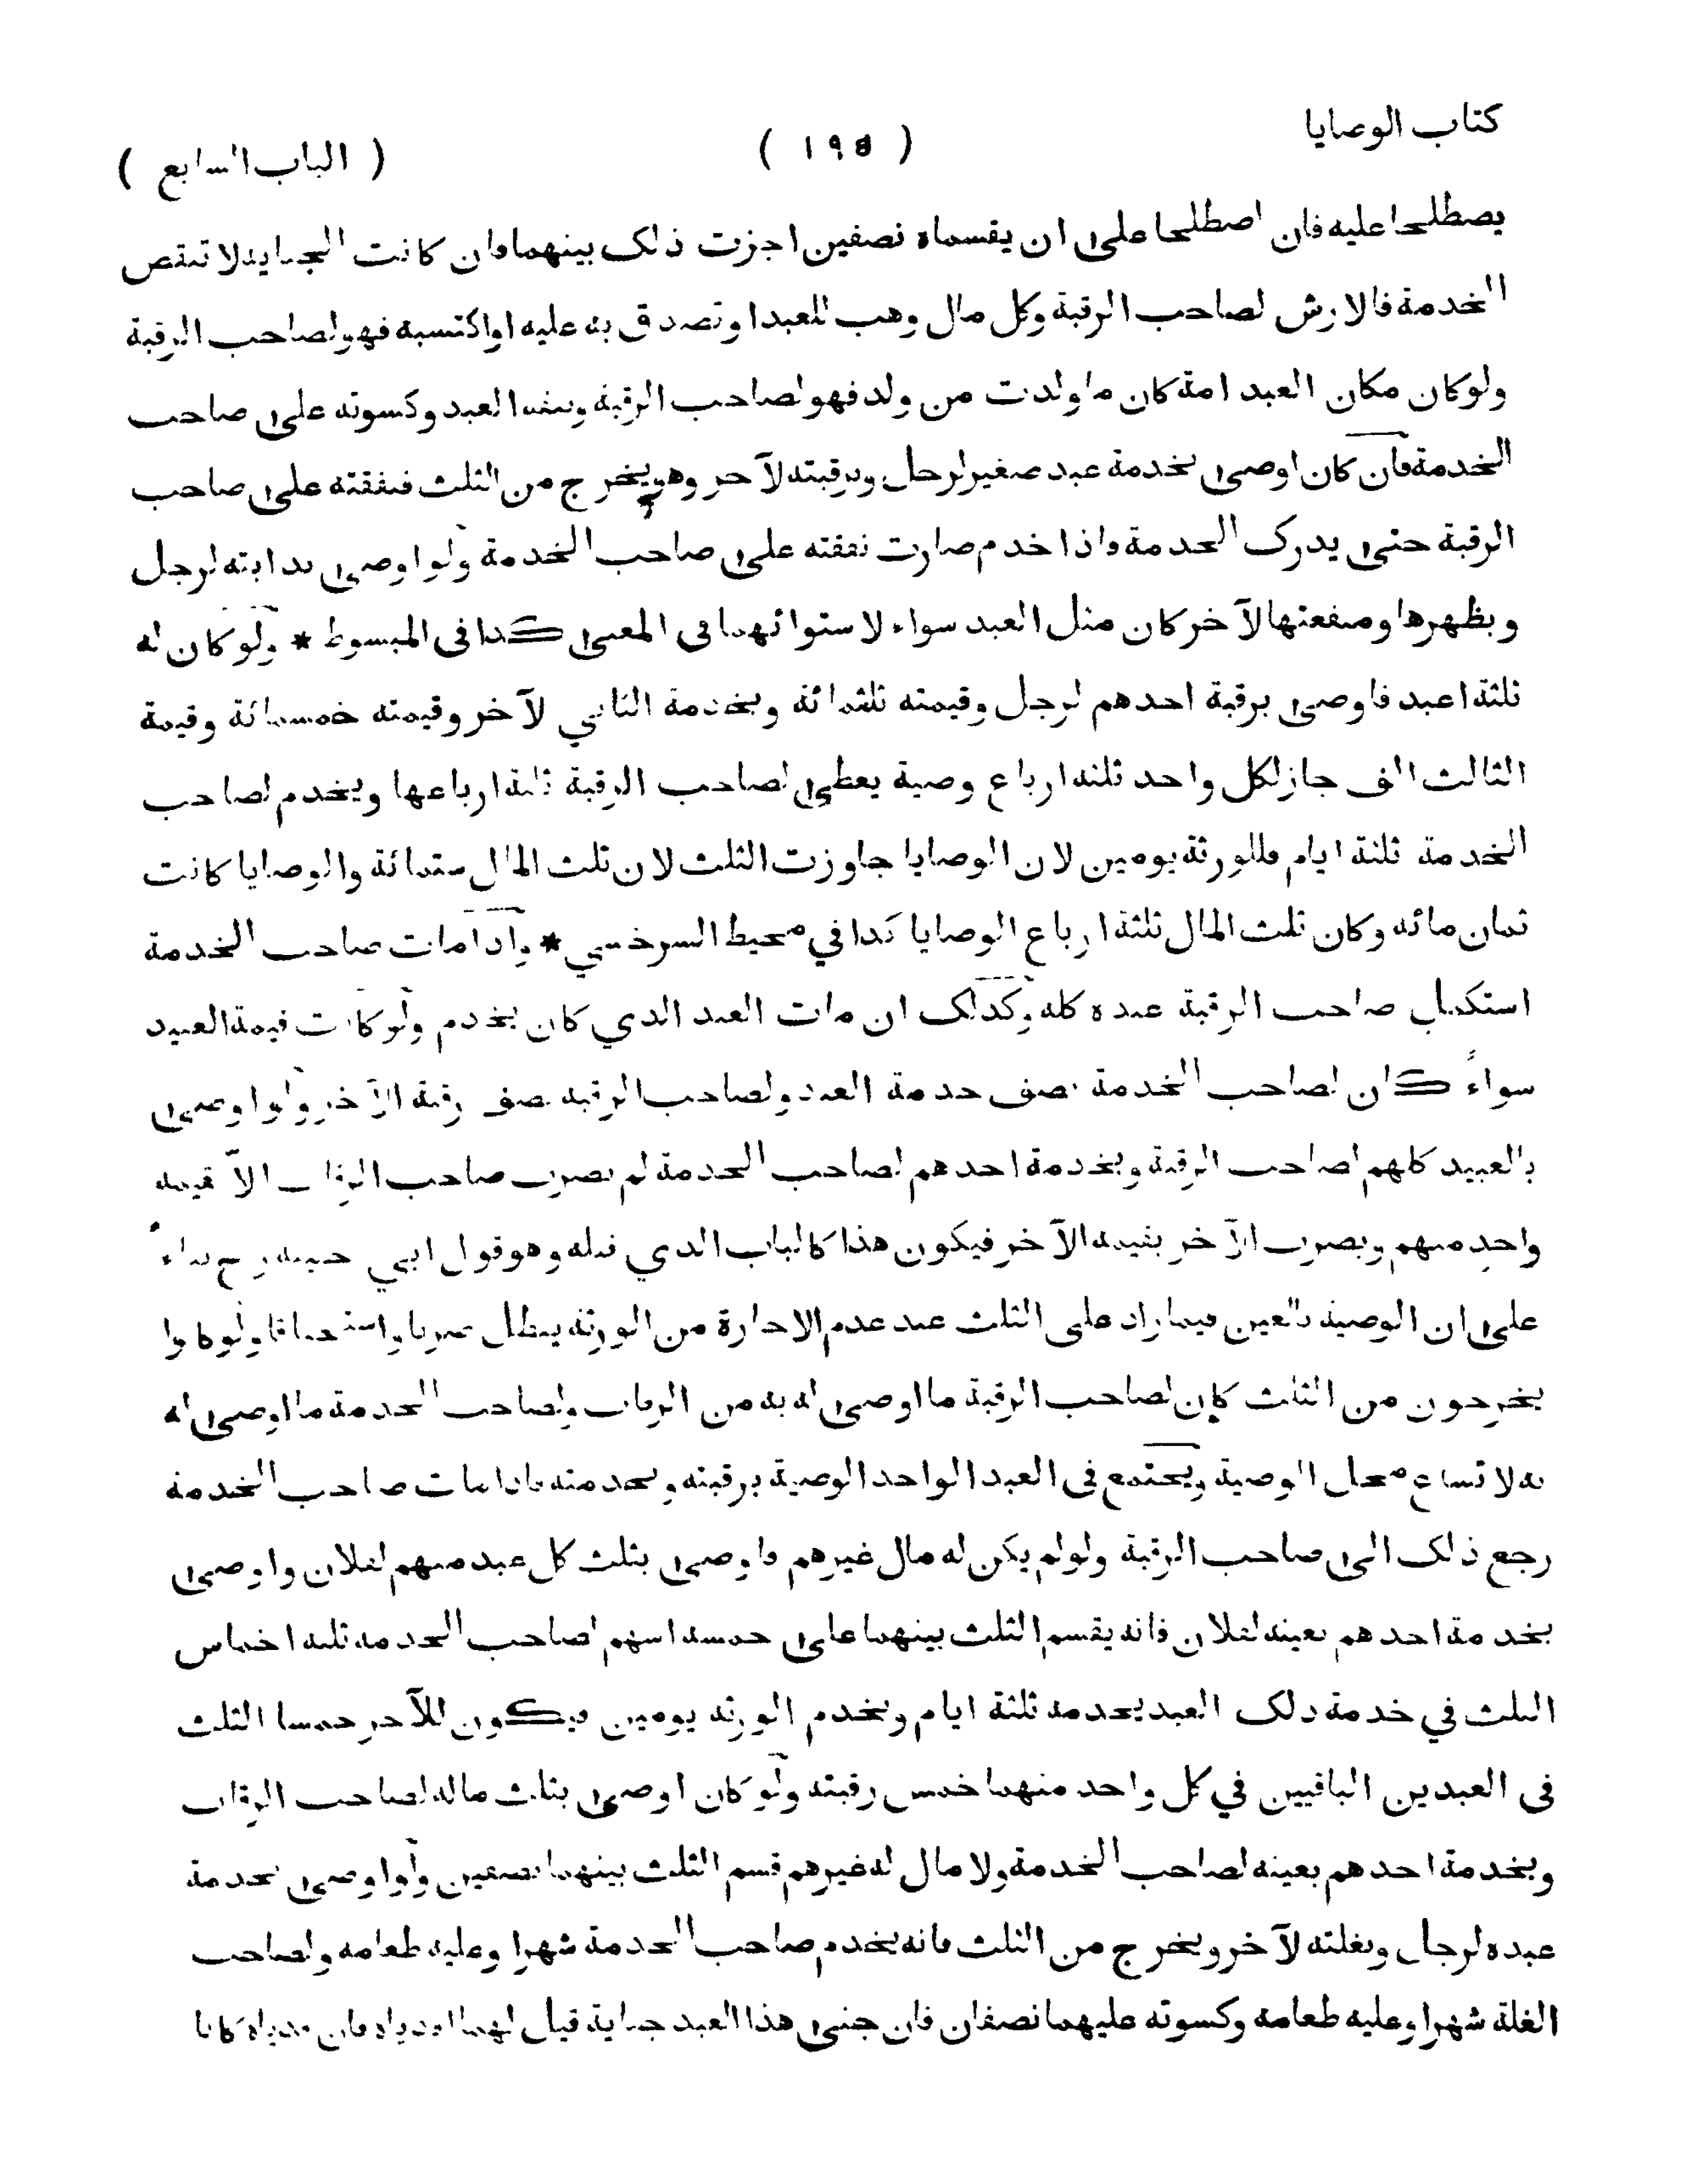 كتاب الوصايا
( ١٩٥ )
( الباب السابع )
يصطلحا عليه فان اصطلحا على ان يقسماه نصفين اجزت ذلك بينهما وان كانت الجناية لا تنقص
الخدمة فالارش لصاحب الرقبة وكل مال وهب للعبد او تصدق به عليه او اكتسبه فهو لصاحب الرقبة
ولو كان مكان العبد امة كان ما ولدت من ولد فهو لصاحب الرقبة ونفقة العبد وكسوته على صاحب
الخدمة فان كان اوصى بخدمة عبد صغير لرجل وبرقبته لآخر وهو يخرج من الثلث فنفقته على صاحب
الرقبة حتى يدرك الخدمة واذا خدم صارت نفقته على صاحب الخدمة ولو اوصى بدابته لرجل
وبظهرها ومنفعتها لآخر كان مثل العبد سواء لاستوائهما في المعنى كذا في المبسوط * ولو كان له
ثلثة اعبد فاوصى برقبة احدهم لرجل وقيمته ثلثمائة وبخدمة الثاني لآخر وقيمته خمسمائة وقيمة
الثالث الف جاز لكل واحد ثلثة ارباع وصية يعطى لصاحب الرقبة ثلثة ارباعها ويخدم لصاحب
الخدمة ثلثة ايام وللورثة يومين لان الوصايا جاوزت الثلث لان ثلث المال ستمائة والوصايا كانت
ثمان مائة وكان ثلث المال ثلثة ارباع الوصايا كذا في محيط السرخسي * واذا مات صاحب الخدمة
استكمل صاحب الرقبة عبده كله وكذلك ان مات العبد الذي كان يخدم ولو كانت قيمة العبيد
سواءً كان لصاحب الخدمة نصف خدمة العبد ولصاحب الرقبة نصف رقبة الآخر ولو اوصى
بالعبيد كلهم لصاحب الرقبة وبخدمة احدهم لصاحب الخدمة لم يضرب صاحب الرقاب الاّ بقيمة
واحد منهم ويضرب الآخر بقيمة الآخر فيكون هذا كالباب الذي قبله وهو قول ابي حنيفة رح بناءً
على ان الوصية بالعين فيما زاد على الثلث عند عدم الاجازة من الورثة يبطل ضربا واستحقاقا ولو كانوا
يخرجون من الثلث كان لصاحب الرقبة ما اوصى له به من الرقاب ولصاحب الخدمة ما اوصى له
به لاتساع محل الوصية ويجتمع في العبد الواحد الوصية برقبته وبخدمته فاذا مات صاحب الخدمة
رجع ذلك الى صاحب الرقبة ولو لم يكن له مال غيرهم فاوصى بثلث كل عبد منهم لفلان واوصى
بخدمة احدهم بعينه لفلان فانه يقسم الثلث بينهما على خمسة اسهم لصاحب الخدمة ثلثة اخماس
الثلث في خدمة ذلك العبد يخدمه ثلثة ايام ويخدم الورثة يومين فيكون للآخر خمسا الثلث
في العبدين الباقيين في كل واحد منهما خمس رقبته ولو كان اوصى بثلث ماله لصاحب الرقاب
وبخدمة احدهم بعينه لصاحب الخدمة ولا مال له غيرهم قسم الثلث بينهما نصفين ولو اوصى بخدمة
عبده لرجل وبغلته لآخر ويخرج من الثلث فانه يخدم صاحب الخدمة شهرا وعليه طعامه ولصاحب
الغلة شهرا وعليه طعامه وكسوته عليهما نصفان فان جنى هذا العبد جناية قيل لهما افدياه فان فدياه كانا